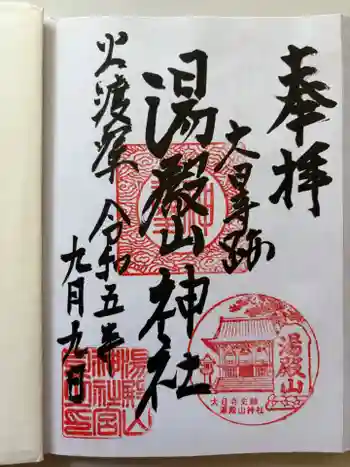 奉拝
大日寺跡
湯殿山神社
火渡祭 令和五年
九月九日
湯殿山
大日寺史跡
湯殿山神社